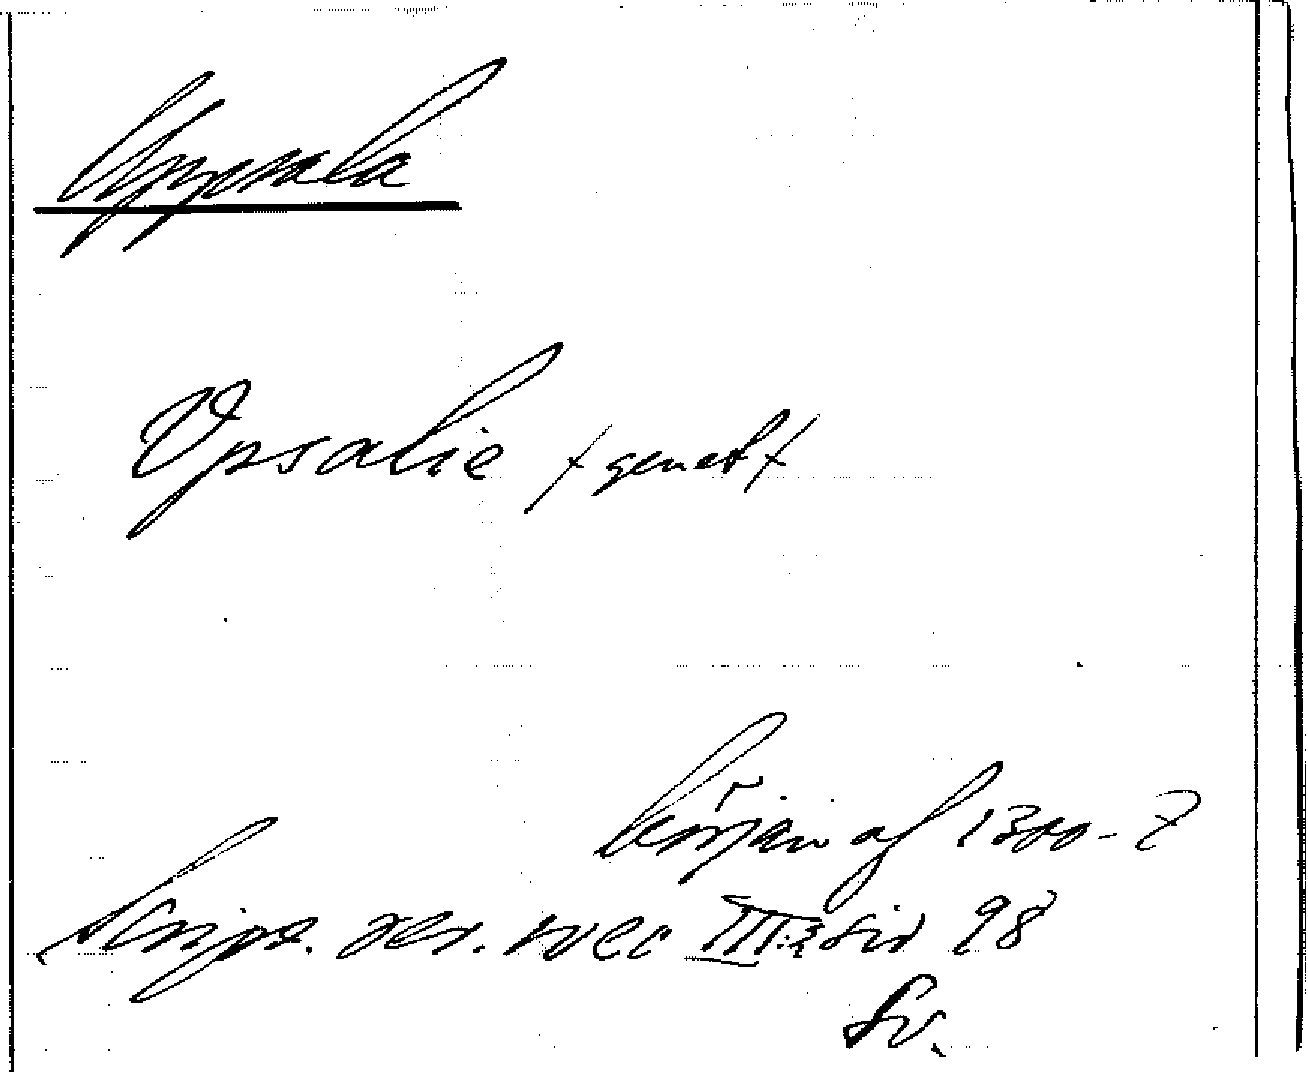 Uppsala
Vpsalie /genet/
början af 1300-t
Script. rer. svec III:2 sid 98
Sv.